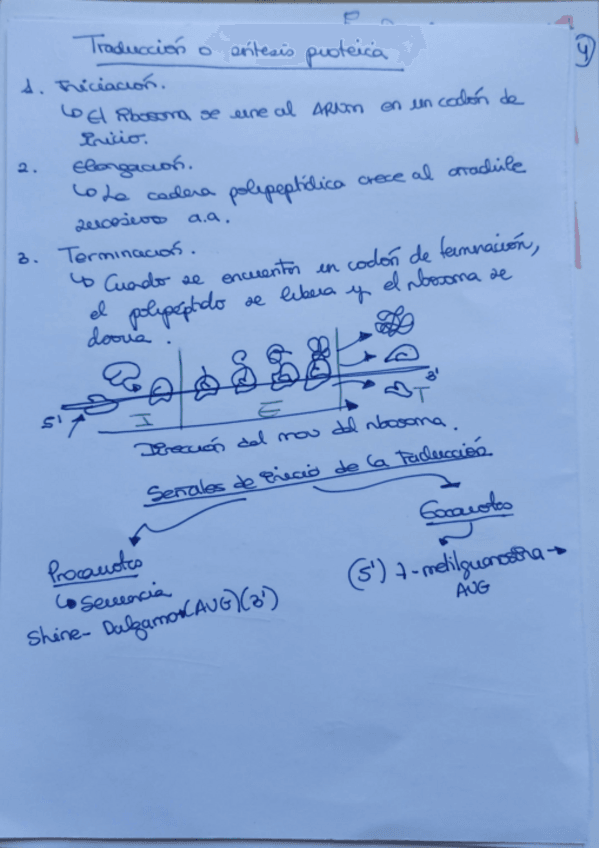 4)
Traducción o síntesis proteica
1. Iniciación.
↳ El Ribosoma se une al ARNm en un codón de
Inicio.
2. Elongación.
↳ La cadena polipeptídica crece al añadirle
sucesivos a.a.
3. Terminación.
↳ Cuando se encuentra un codón de terminación,
el polipéptido se libera y el ribosoma se
5' I E T 3'
Dirección del mov del ribosoma.
Señales de Inicio de la Traducción
Procariotas
↳ Secuencia
Shine-Dalgarno (AUG) (3')
Eucariotas
(5') 7-metilguanosina →
AUG